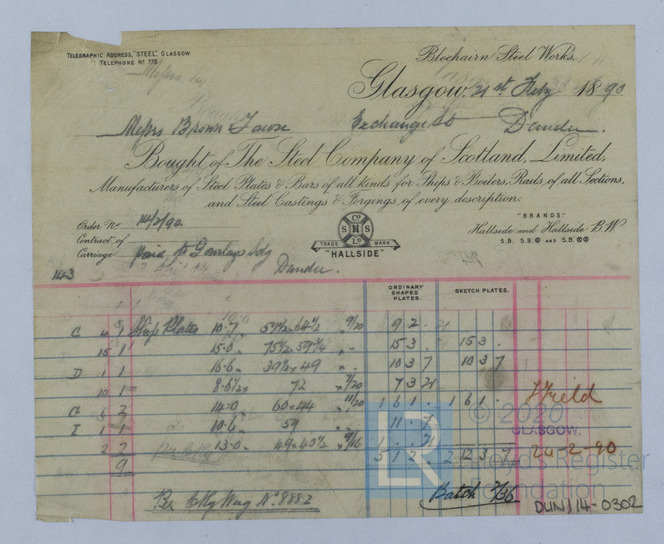 TELEGRAPHIC ADDRESS, "STEEL", GLASGOW
TELEPHONE Nº 775
Blochairn Steel Works,
Glasgow, 21st Feby 1890
Messrs Brown Tawse Exchange St Dundee.
Bought of The Steel Company of Scotland, Limited,
Manufacturers of Steel Plates & Bars of all kinds for Ships & Boilers, Rails, of all Sections,
and Steel Castings & Forgings of every description.
Order No. 14/2/90
Contract of
Carriage paid to Gourlays Sdg
Dundee.
Cº
S H S
Lº
TRADE MARK
"HALLSIDE"
"BRANDS."
Hallside and Hallside B.W
S.B. S.B. AND S.B.
143
ORDINARY SHAPED PLATES. SKETCH PLATES.
C 4 1 Ship Plates 10.7 57½ 64½ 9/20 9 2
15 1 15.0 75½ 57¾ 15 3 15 3
D 1 1 16.6 30½ × 49 10 3 7 10 3 7
10 1 8.6½ × 72 7/20 7 3 21
G 6 2 14.0 60 × 44 11/20 1 6 1 1 6 1
I 1 1 10.6 59 11 . 7
2 2 13.0 49 × 40½ 9/16 1 . 7
9 5 1 2 2 12 3 7
Field
GLASGOW,
24-2-90
Per C Ry Wag Nº 8882
Batch 2/36
LR
© 2020
Lloyd's Register
Foundation
DUN/14-0302